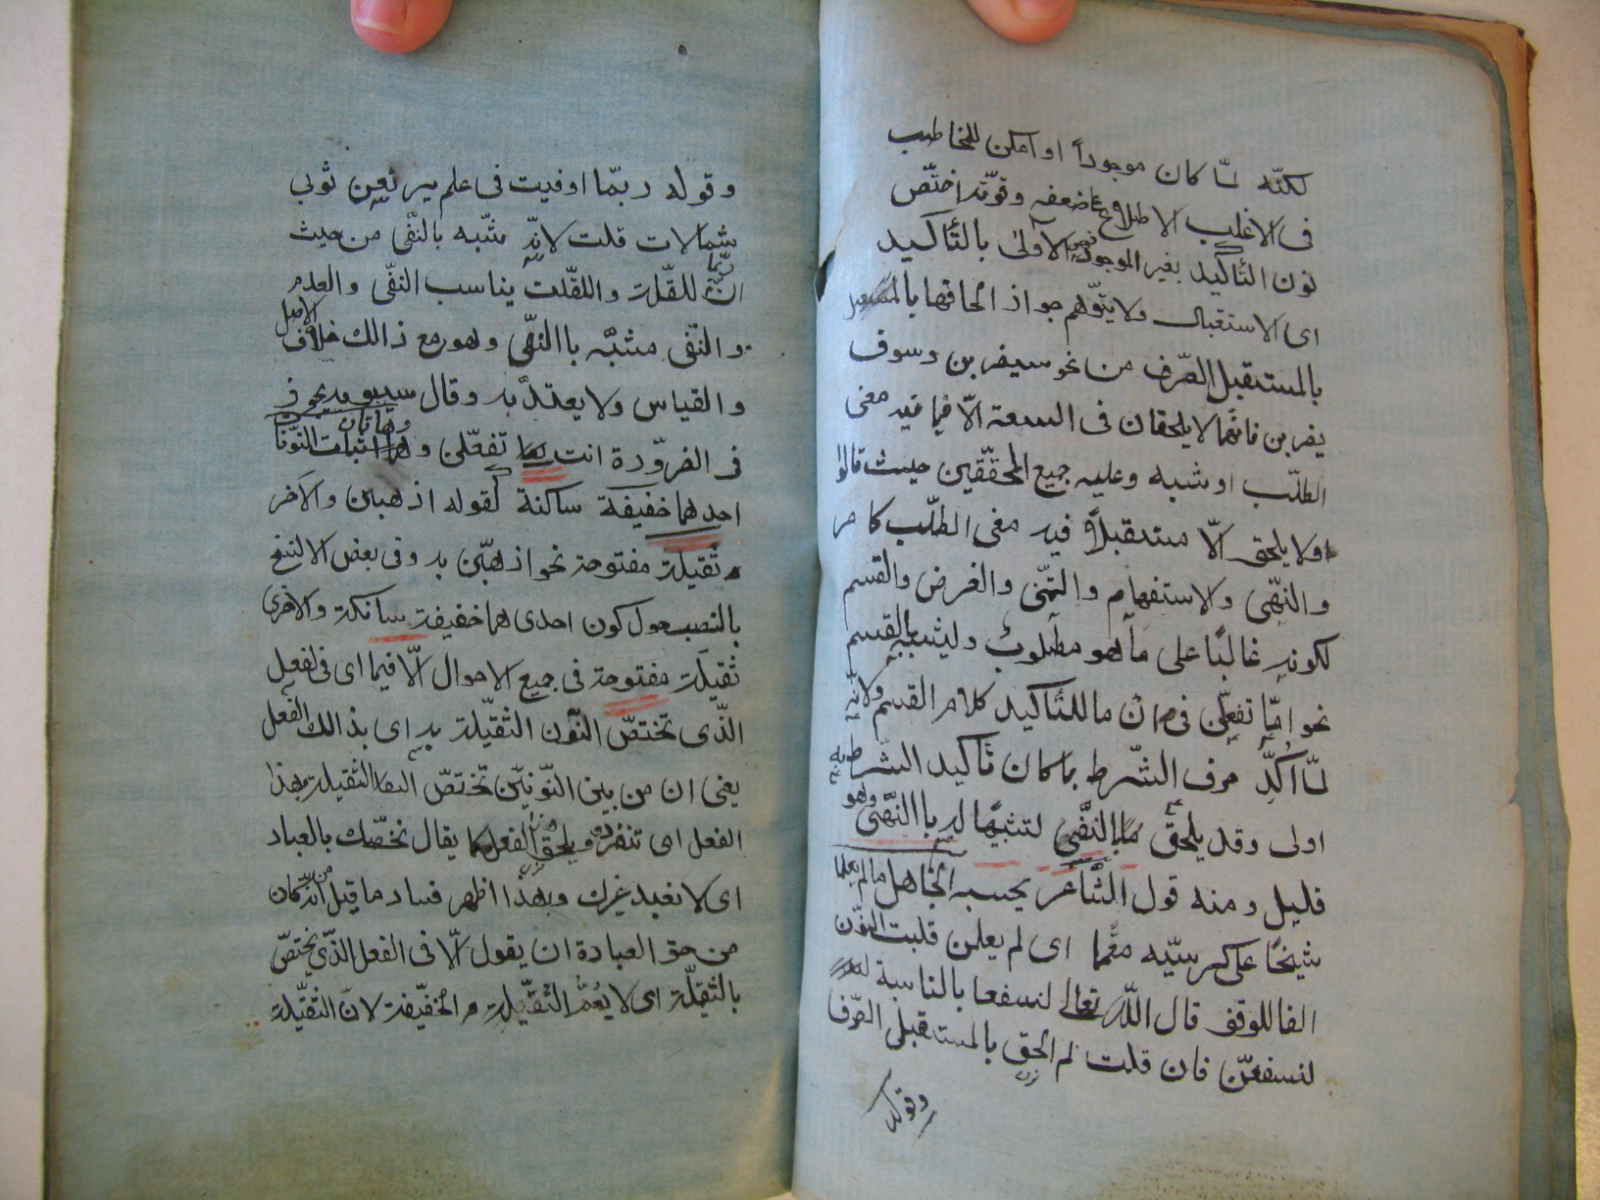 لكنّه لمّا كان موجوداً او امكن للمخاطب
فى الاغلب الاطلاع على ضعفه وقوّته اختصّ
نون التّأكيد بغير الموجود الاولى بالتّأكيد
اى الاستقبال ولا يتوّهم جواز الحاقها بالمستقبل
بالمستقبل الصّرف من نحو سيضربن وسوف
يضربن فانّهما لا يلحقان فى السعة الّا فيما فيه معنى
الطلّب او شبه وعليه جميع المحقّقين حيث قالوا
ولا يلحق الّا مستقبلاً فيه معنى الطلّب كالامر
والنهّى والاستفهام والتمّنى والعرض والقسم
لكونه غالبًا على ما هو مطلوب وليشبه بالقسم
نحو امّا تفعلنّ فى ان ما للتأكيد كلام القسم ولانّه
لمّا اكّد حرف الشّرط بما كان تأكيد الشّرط
اولى وقد يلحق بالنفّى لتشبيهًا له باالنهّى وهو
قليل ومنه قول الشّاعر يحسبه الجاهل ما لم يعلما
شيخًا على كرسيّه معمّما اى لم يعلمن قلبت النوّن
الفا للوقف قال اللّه تعالى لنسفعا بالناسية
لنسفعنّ فان قلت لم الحق بالمستقبل الصّرف
نون
وقوله
وقوله ربمّا اوفيت فى علم يرفعن ثوبى
شمالات قلت لانّه مشّبه بالنفّى من حيث
ربّما
انّ للقلّة واللقلّت يناسب النفّى والعدم
والنفّى مشبّه باالنهّى وهو مع ذالك خلاف الاصل
والقياس ولا يعتدّ به وقال سيبويه يجوز
فى الضرّورة انت تفعلّن وهاتان النوّنا
احدهما خفيفة ساكنة كقوله اذهبن والاخر
ثقيلة مفتوحة نحو اذهبّن به وفى بعض النسخ
بالنصب حول كون احدى هما خفيفة ساكنة والاخرى
ثقيلة مفتوحة فى جميع الاحوال الّا فيما اى فى لفعل
الذّى تختصّ النوّن الثقيّلة به اى بذالك الفعل
يعنى ان من بين النوّنيّن تختصّ الثقيلة بهذا
الفعل اى تنفرد ويلحق الفعل كما يقال نخصّك بالعباد
اى لا نعبد غيرك وبهذا اظهر فساد ما قيل من انّه كان
من حق العبادة ان يقول الّا فى الفعل الذّى يختصّ
بالثقيلّة اى لا يعمّ الثقيّلة والخفيّفة لانّ الثقيّلة